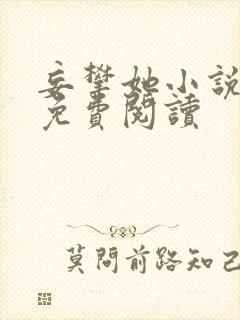 妄攀她小說
免費閱讀
莫問前路知己